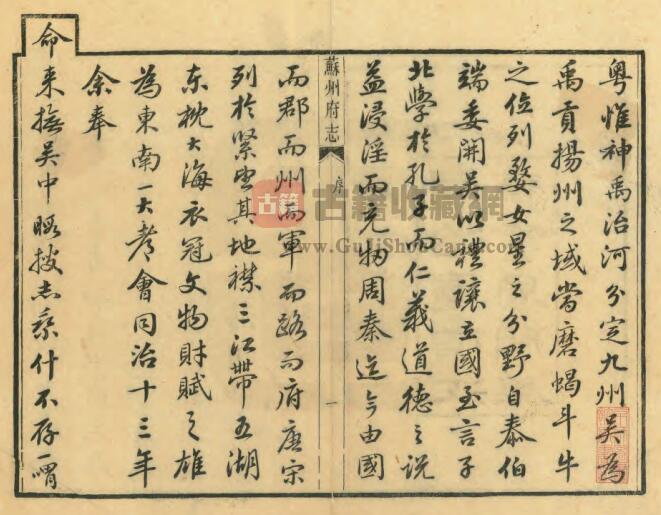 粤惟神禹治河分定九州吴為
禹貢揚州之域當磨蝎斗牛
之位列婺女星之分野自泰伯
端委開吴以禮讓立國至言子
北學於孔子而仁義道德之説
益浸淫而充物周秦迄今由國
蘇州府志
序
一
而郡而州而軍而路而府唐宋
列於緊望其地襟三江帶五湖
東枕大海衣冠文物財賦之雄
為東南一大都會同治十三年
余奉
命来撫吴中暇披志乘什不存一喟
古籍
古籍收藏網
www.GuJiShouCang.com